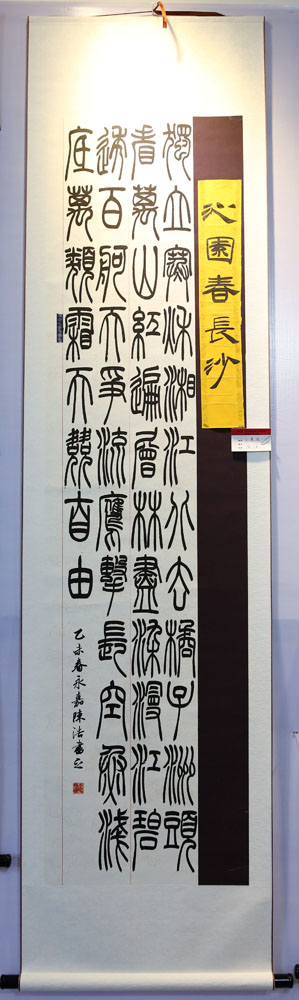 沁園春長沙
獨立寒秋湘江北去橘子洲頭
看萬山紅遍層林盡染漫江碧
透百舸爭流鷹擊長空魚淺
底萬類霜天競自由
乙未春永嘉陳浩書之